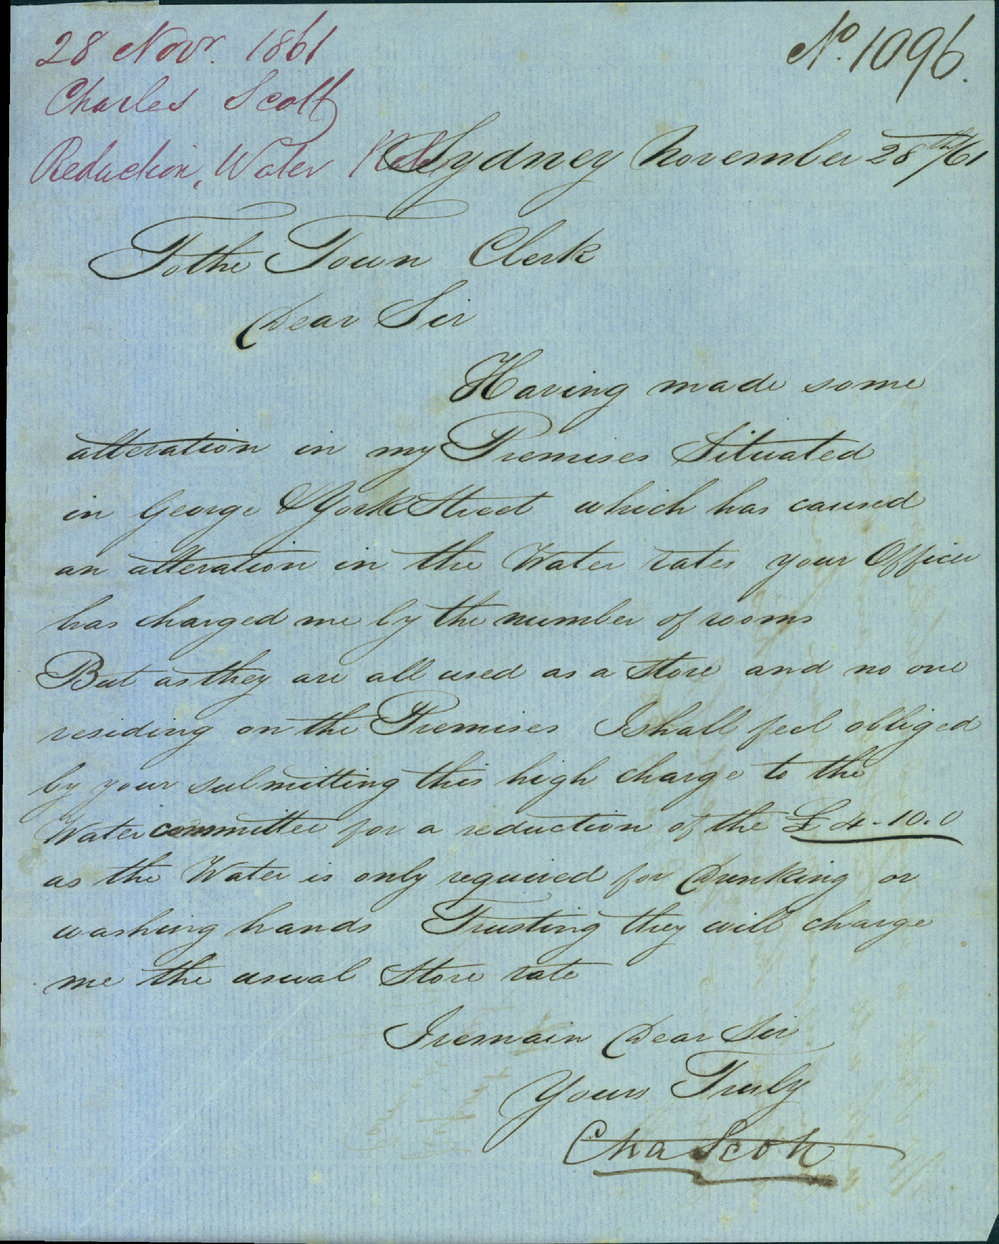 28 Novr. 1861
No. 1096.
Charles Scott
Reduction, Water Rate
Sydney November 28th/61
To the Town Clerk
Dear Sir
Having made some
alteration in my Premises Situated
in George & York Street which has caused
an alteration in the Water rates your Officer
has charged me by the number of rooms
But as they are all used as a Store and no one
residing on the Premises I shall feel obliged
by your submitting this high charge to the
Water committee for a reduction of the £4-10.0
as the Water is only required for Drinking or
washing hands Trusting they will charge
me the usual Store rate
I remain Dear Sir
Yours Truly
Cha Scott